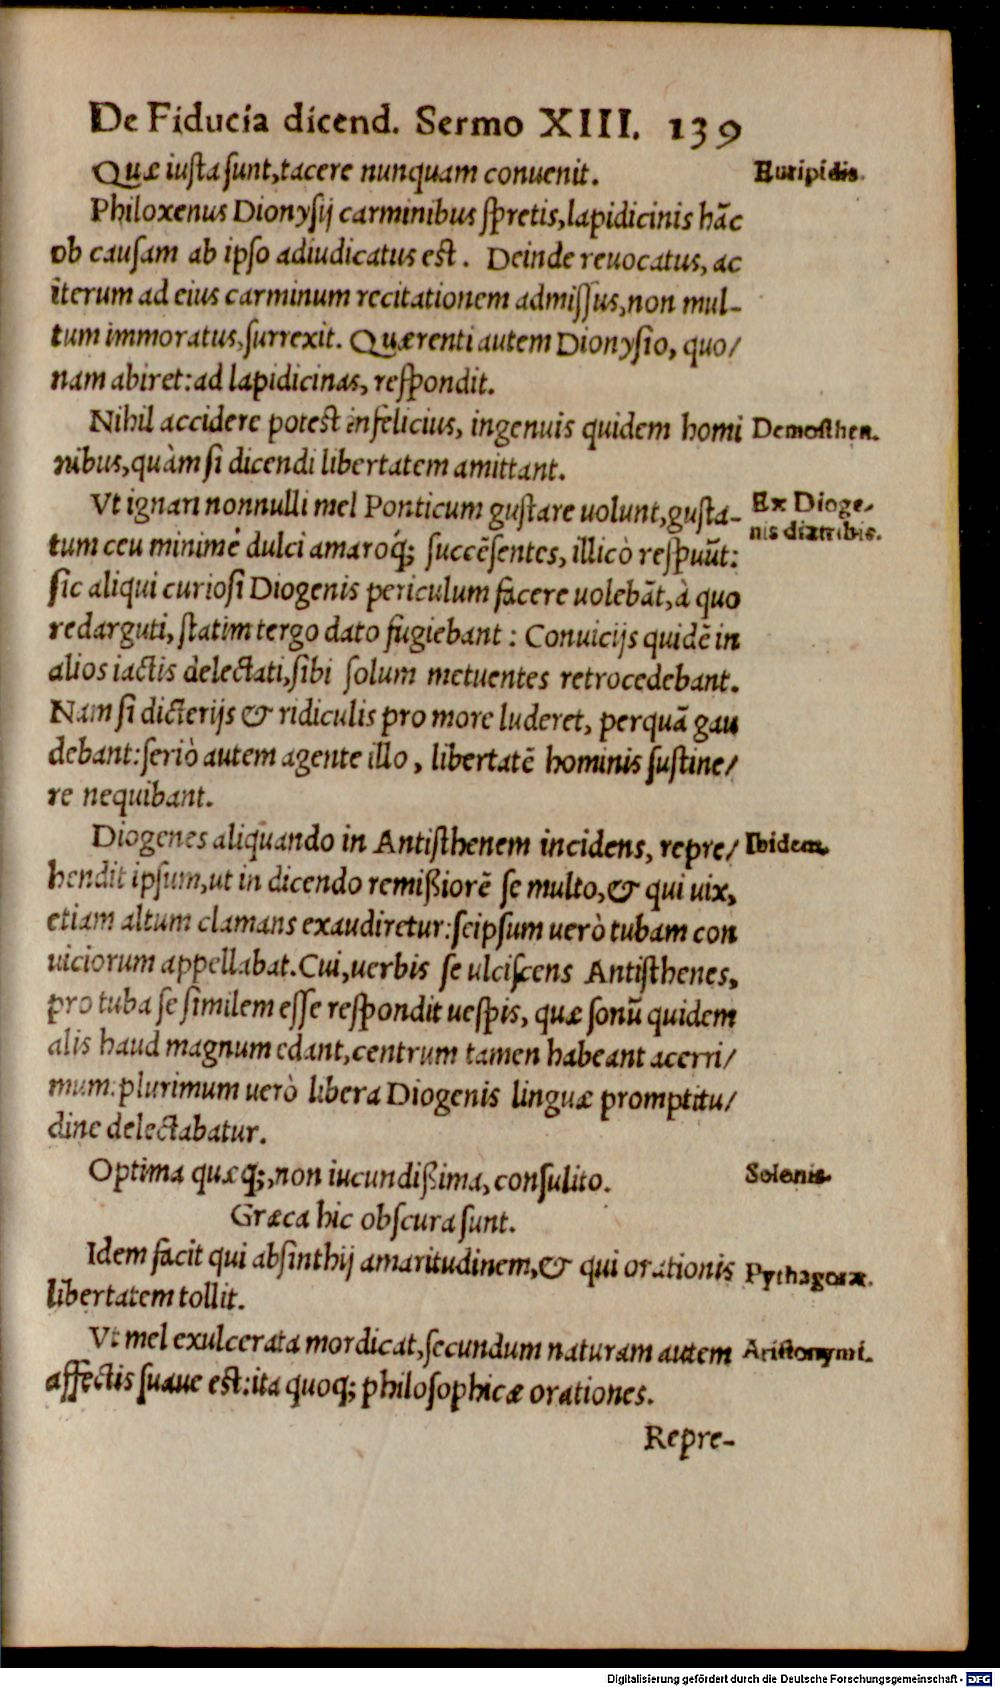 De Fiducia dicend. Sermo XIII. 139
Quæ iusta sunt, tacere nunquam conuenit.
Euripidis.
Philoxenus Dionysij carminibus spretis, lapidicinis hāc
ob causam ab ipso adiudicatus est. Deinde reuocatus, ac
iterum ad eius carminum recitationem admissus, non mul-
tum immoratus, surrexit. Quærenti autem Dionysio, quo/
nam abiret: ad lapidicinas, respondit.
Nihil accidere potest infelicius, ingenuis quidem homi
Demosthen.
nibus, quàm si dicendi libertatem amittant.
Vt ignari nonnulli mel Ponticum gustare uolunt, gusta-
Ex Dioge/
nis diatribis.
tum ceu minimè dulci amaroq́; succēsentes, illicò respuūt:
sic aliqui curiosi Diogenis periculum facere uolebāt, à quo
redarguti, statim tergo dato fugiebant: Conuicijs quidē in
alios iactis delectati, sibi solum metuentes retrocedebant.
Nam si dicterijs & ridiculis pro more luderet, perquā gau
debant: seriò autem agente illo, libertatē hominis sustine/
re nequibant.
Diogenes aliquando in Antisthenem incidens, repre/
Ibidem.
hendit ipsum, ut in dicendo remißiorē se multo, & qui uix,
etiam altum clamans exaudiretur: seipsum uerò tubam con
uiciorum appellabat. Cui, uerbis se ulciscens Antisthenes,
pro tuba se similem esse respondit uespis, quæ sonū quidem
alis haud magnum edant, centrum tamen habeant acerri/
mum: plurimum uerò libera Diogenis linguæ promptitu/
dine delectabatur.
Optima quæq;, non iucundißima, consulito.
Solonis.
Græca hic obscura sunt.
Idem facit qui absinthij amaritudinem, & qui orationis
Pythagoræ.
libertatem tollit.
Vt mel exulcerata mordicat, secundum naturam autem
Aristonymi.
affectis suaue est: ita quoq; philosophicæ orationes.
Repre-
Digitalisierung gefördert durch die Deutsche Forschungsgemeinschaft - DFG